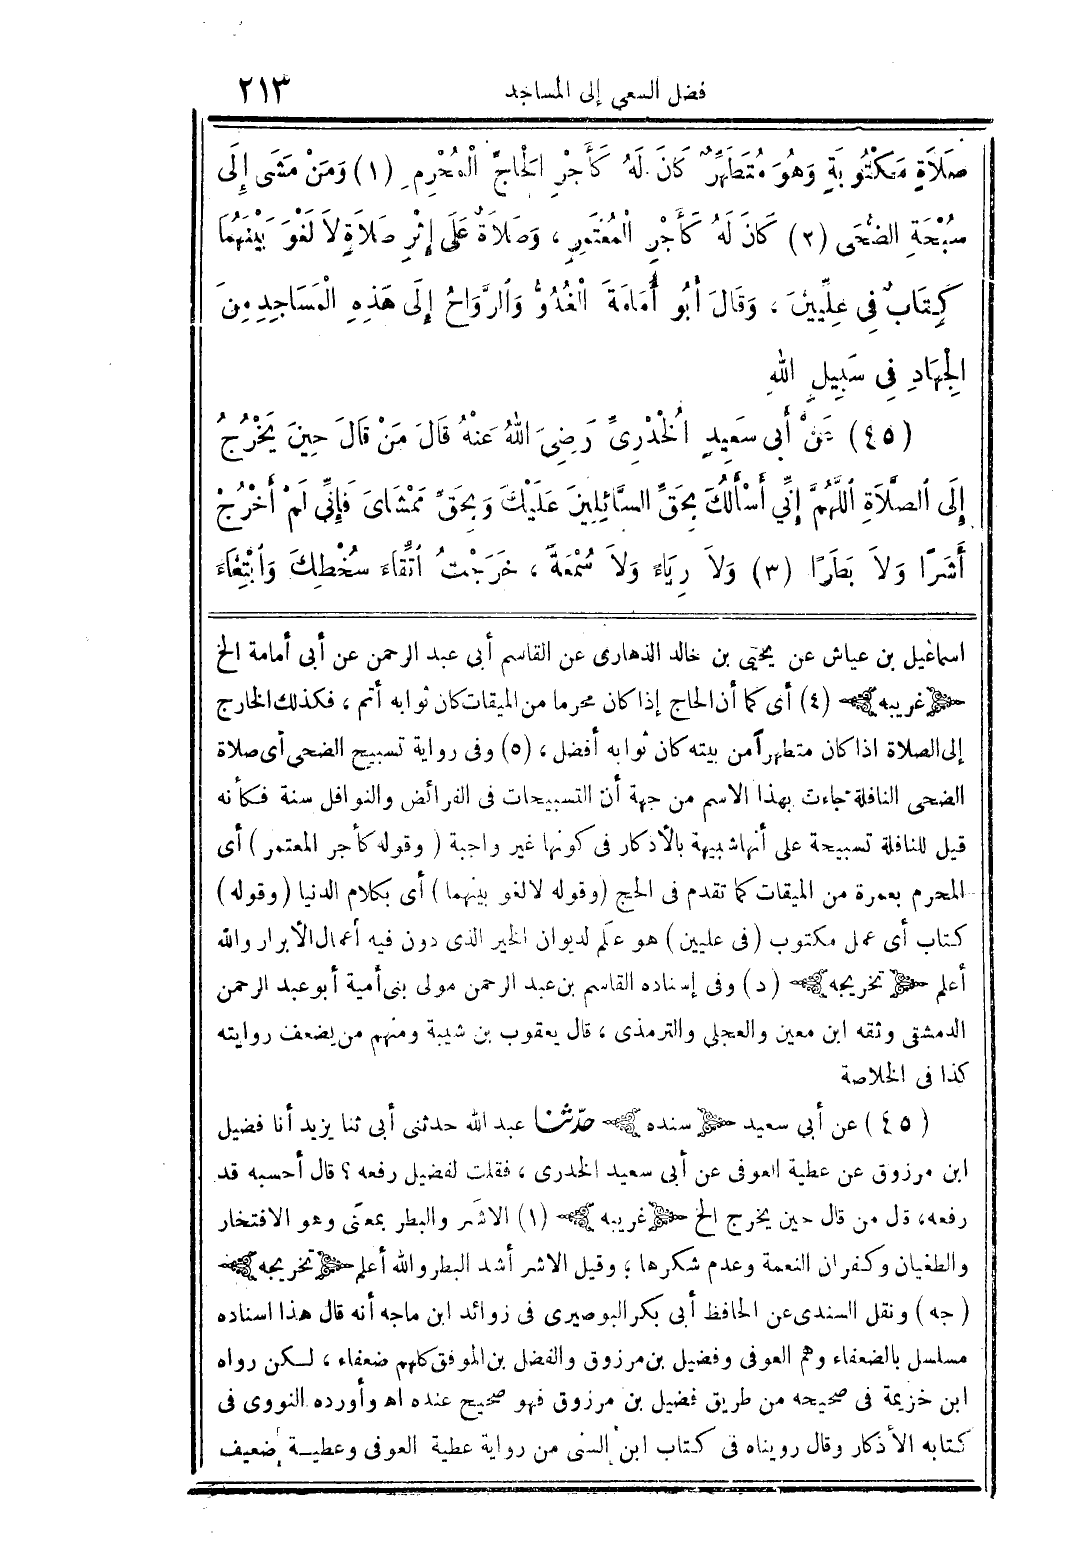 فضل السعي إلى المساجد ٢١٣
صَلَاةٍ مَكْتُوبَةٍ وَهُوَ مُتَطَهِّرٌ كَانَ لَهُ كَأَجْرِ الْحَاجِّ الْمُحْرِمِ (١) وَمَنْ مَشَى إِلَى
سُبْحَةِ الضُّحَى (٢) كَانَ لَهُ كَأَجْرِ الْمُعْتَمِرِ ، وَصَلَاةٌ عَلَى إِثْرِ صَلَاةٍ لَا لَغْوَ بَيْنَهُمَا
كِتَابٌ فِي عِلِّيِّينَ ، وَقَالَ أَبُو أُمَامَةَ الْغُدُوُّ وَالرَّوَاحُ إِلَى هَذِهِ الْمَسَاجِدِ مِنَ
الْجِهَادِ فِي سَبِيلِ اللهِ
(٤٥) عَنْ أَبِي سَعِيدٍ الْخُدْرِيِّ رَضِيَ اللهُ عَنْهُ قَالَ مَنْ قَالَ حِينَ يَخْرُجُ
إِلَى الصَّلَاةِ اللَّهُمَّ إِنِّي أَسْأَلُكَ بِحَقِّ السَّائِلِينَ عَلَيْكَ وَبِحَقِّ مَمْشَايَ فَإِنِّي لَمْ أَخْرُجْ
أَشَرًا وَلَا بَطَرًا (٣) وَلَا رِيَاءً وَلَا سُمْعَةً ، خَرَجْتُ اتِّقَاءَ سُخْطِكَ وَابْتِغَاءَ
اسماعيل بن عياش عن يحيى بن خالد الذهارى عن القاسم أبي عبد الرحمن عن أبى أمامة الخ
﴿غريبه﴾ (٤) أى كما أن الحاج إذا كان محرما من الميقات كان ثوابه أتم ، فكذلك الخارج
إلى الصلاة اذا كان متطهراً من بيته كان ثوابه أفضل ، (٥) وفى رواية تسبيح الضحى أى صلاة
الضحى النافلة جاءت بهذا الاسم من جهة أن التسبيحات فى الفرائض والنوافل سنة فكأنه
قيل للنافلة تسبيحة على أنها شبيهة بالأذكار فى كونها غير واجبة ( وقوله كأجر المعتمر ) أى
المحرم بعمرة من الميقات كما تقدم فى الحج (وقوله لا لغو بينهما ) أى بكلام الدنيا (وقوله )
كتاب أى عمل مكتوب (فى عليين) هو علَم لديوان الخير الذى دون فيه أعمال الأبرار والله
أعلم ﴿تخريجه﴾ (د) وفى إسناده القاسم بن عبد الرحمن مولى بنى أمية أبو عبد الرحمن
الدمشقى وثقه ابن معين والعجلى والترمذى ، قال يعقوب بن شيبة ومنهم من يضعف روايته
كذا فى الخلاصة
(٤٥) عن أبي سعيد ﴿سنده﴾ حدّثنا عبد الله حدثنى أبى ثنا يزيد أنا فضيل
ابن مرزوق عن عطية العوفى عن أبى سعيد الخدرى ، فقلت لفضيل رفعه ؟ قال أحسبه قد
رفعه، قال من قال حين يخرج الخ ﴿غريبه﴾ (١) الاشَر والبطر بمعنًى وهو الافتخار
والطغيان وكفران النعمة وعدم شكرها ؛ وقيل الاشر أشد البطر والله أعلم ﴿تخريجه﴾
( جه ) ونقل السندى عن الحافظ أبى بكر البوصيرى فى زوائد ابن ماجه أنه قال هذا اسناده
مسلسل بالضعفاء وهم العوفى وفضيل بن مرزوق والفضل بن الموفق كلهم ضعفاء ، لكن رواه
ابن خزيمة فى صحيحه من طريق فضيل بن مرزوق فهو صحيح عنده اهـ وأورده النووى فى
كتابه الأذكار وقال رويناه فى كتاب ابن السنى من رواية عطية العوفى وعطية ضعيف